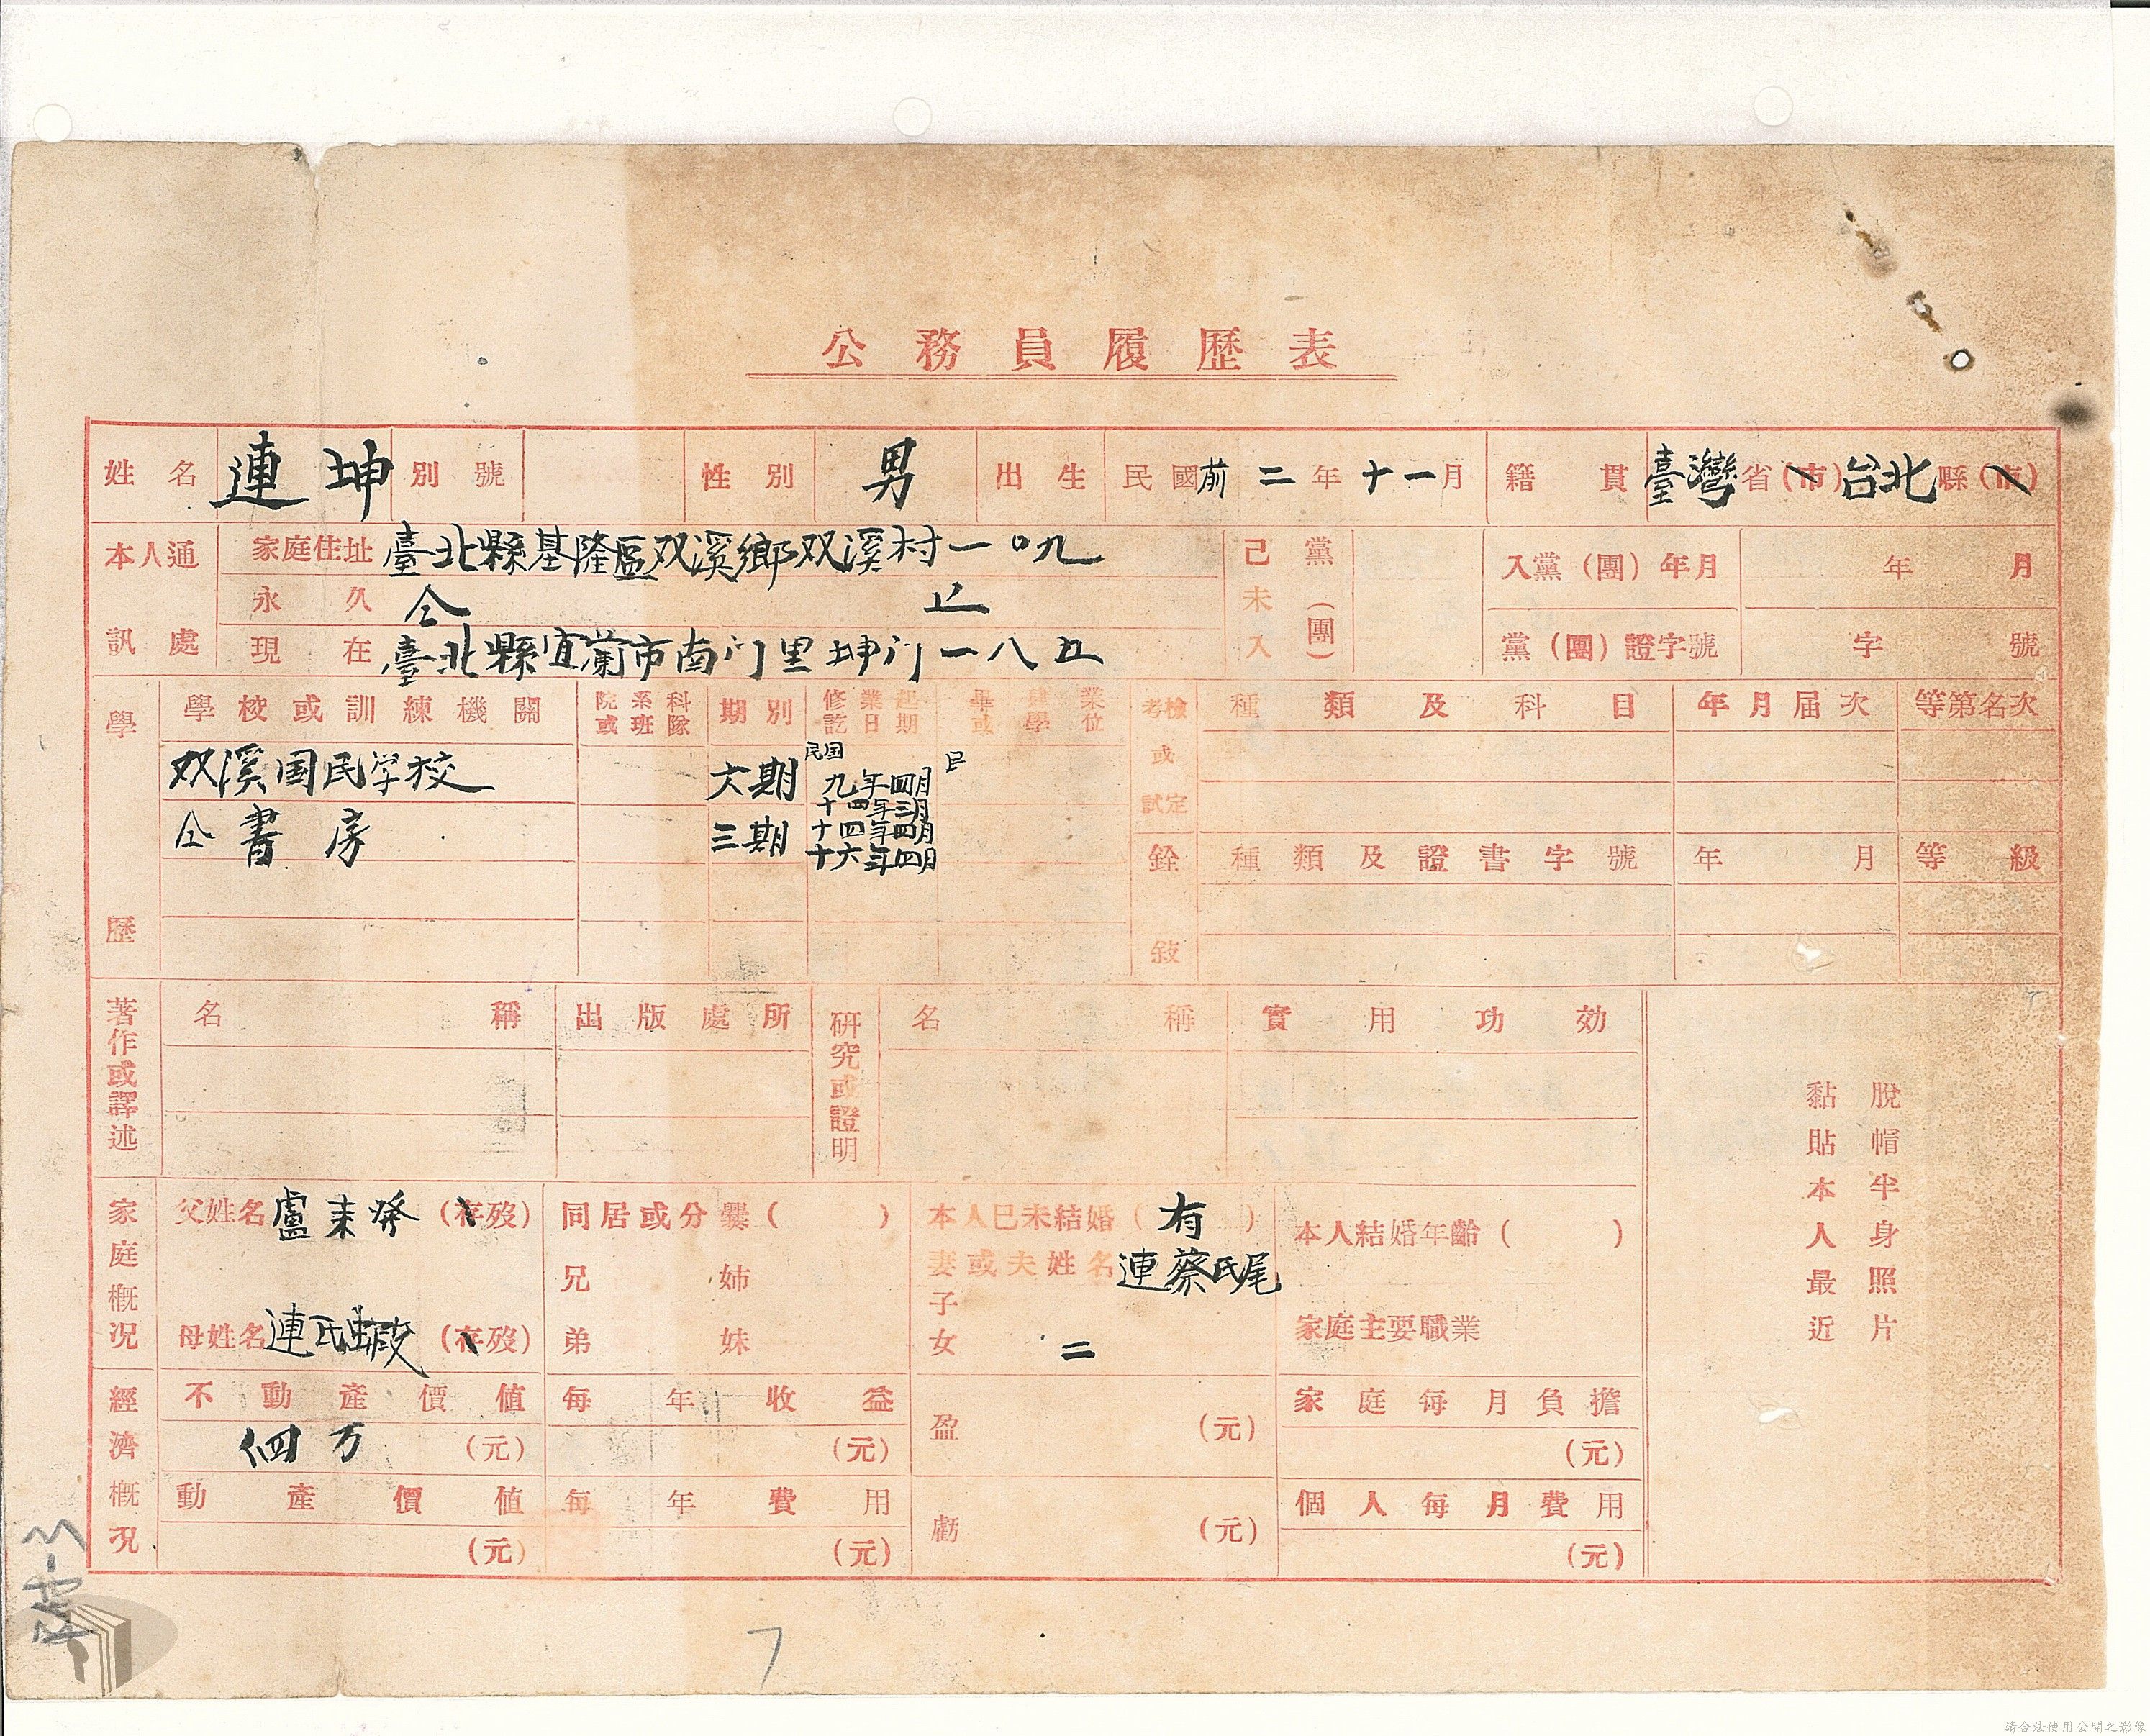 公務員履歷表
姓名 連坤 別號 性別 男 出生 民國前二年十一月 籍貫 臺灣省(市)台北縣(市)
本人通訊處
家庭住址 臺北縣基隆區双溪鄉双溪村一〇九
永久 仝 上
現在 臺北縣宜蘭市南门里坤门一八五
己未入黨(團)
入黨(團)年月 年 月
黨(團)證字號 字 號
學歷
學校或訓練機關 院系科或班隊 期別 修業起訖日期 畢業或學位
双溪国民学校 六期 民国九年四月 民
十四年三月
仝書房 三期 十四年四月
十六年四月
考檢或試定 種類及科目 年月届次 等第名次
銓敍 種類及證書字號 年月 等級
著作或譯述 名稱 出版處所
研究或證明 名稱 實用功効
脫帽半身照片
黏貼本人最近
家庭概況
父姓名 盧 (存歿) 同居或分爨( ) 本人已未結婚(有) 本人結婚年齡( )
妻或夫姓名 連蔡氏尾
兄 姉 子
母姓名 連氏 (存歿) 弟 妹 女 二 家庭主要職業
經濟概況
不動產價値 每年收益 盈 (元) 家庭每月負擔
四万 (元) (元) (元)
動產價値 每年費用 虧 (元) 個人每月費用
(元) (元) (元)
7
請合法使用公開之影像